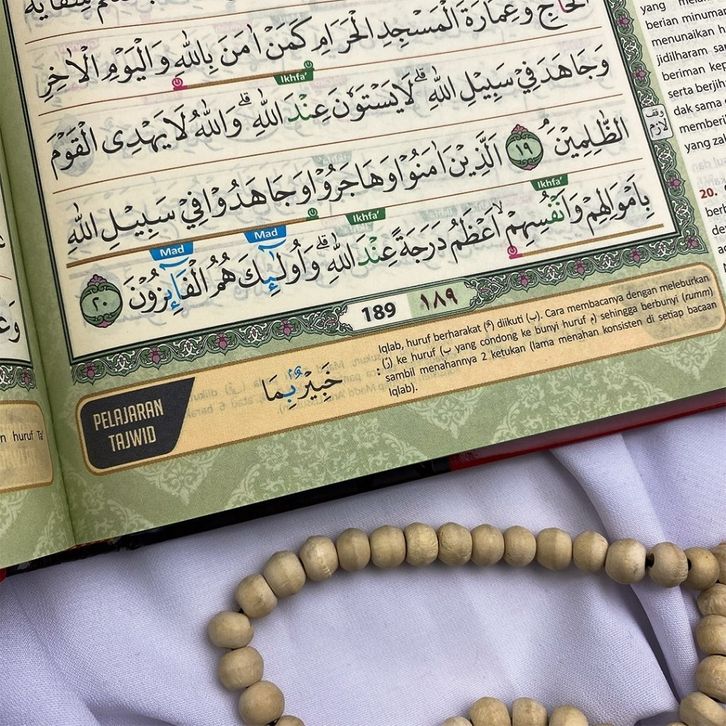 الْحَاجِّ وَعِمَارَةَ الْمَسْجِدِ الْحَرَامِ كَمَنْ اٰمَنَ بِاللّٰهِ وَالْيَوْمِ الْاٰخِرِ
Ikhfa'
وَجَاهَدَ فِيْ سَبِيْلِ اللّٰهِ ۗ لَا يَسْتَوٗنَ عِنْدَ اللّٰهِ ۗ وَاللّٰهُ لَا يَهْدِى الْقَوْمَ
الظّٰلِمِيْنَۘ ١٩ اَلَّذِيْنَ اٰمَنُوْا وَهَاجَرُوْا وَجَاهَدُوْا فِيْ سَبِيْلِ اللّٰهِ
Mad Mad Ikhfa' Ikhfa'
بِاَمْوَالِهِمْ وَاَنْفُسِهِمْۙ اَعْظَمُ دَرَجَةً عِنْدَ اللّٰهِ ۗ وَاُولٰۤىِٕكَ هُمُ الْفَاۤىِٕزُوْنَ ٢٠
وقف لازم
189 ١٨٩
PELAJARAN
TAJWID
خَبِيْرٌۢ بِمَا :
Iqlab, huruf berharakat (ٌ) diikuti (ب). Cara membacanya dengan meleburkan
(نْ) ke huruf (ب) yang condong ke bunyi huruf م sehingga berbunyi (rumm)
sambil menahannya 2 ketukan (lama menahan konsisten di setiap bacaan
Iqlab).
yang
berian minuman
menunaikan h
jidilharam
beriman kep
serta berjih
dak sama
memberi
yang zal
20.
berh
n huruf Ta'